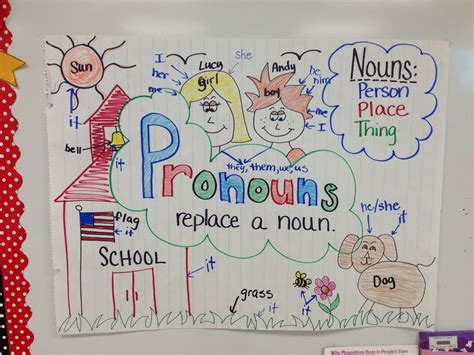 Sun
it
I
her
me
Lucy
girl
she
Andy
boy
he
him
me
I
Nouns:
Person
Place
Thing
bell
it
Pronouns
they, them, we, us
replace a noun.
flag
it
SCHOOL
it
grass
it
it
he/she
it
Dog
Why Mosquitoes Buzz in People's Ears